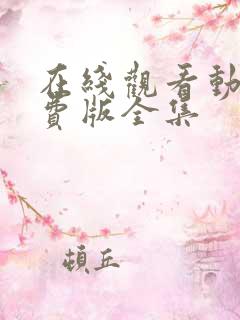 在綫觀看動
費版全集
頓丘